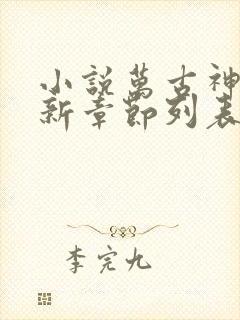 小説萬古神
新章節列表
李完九